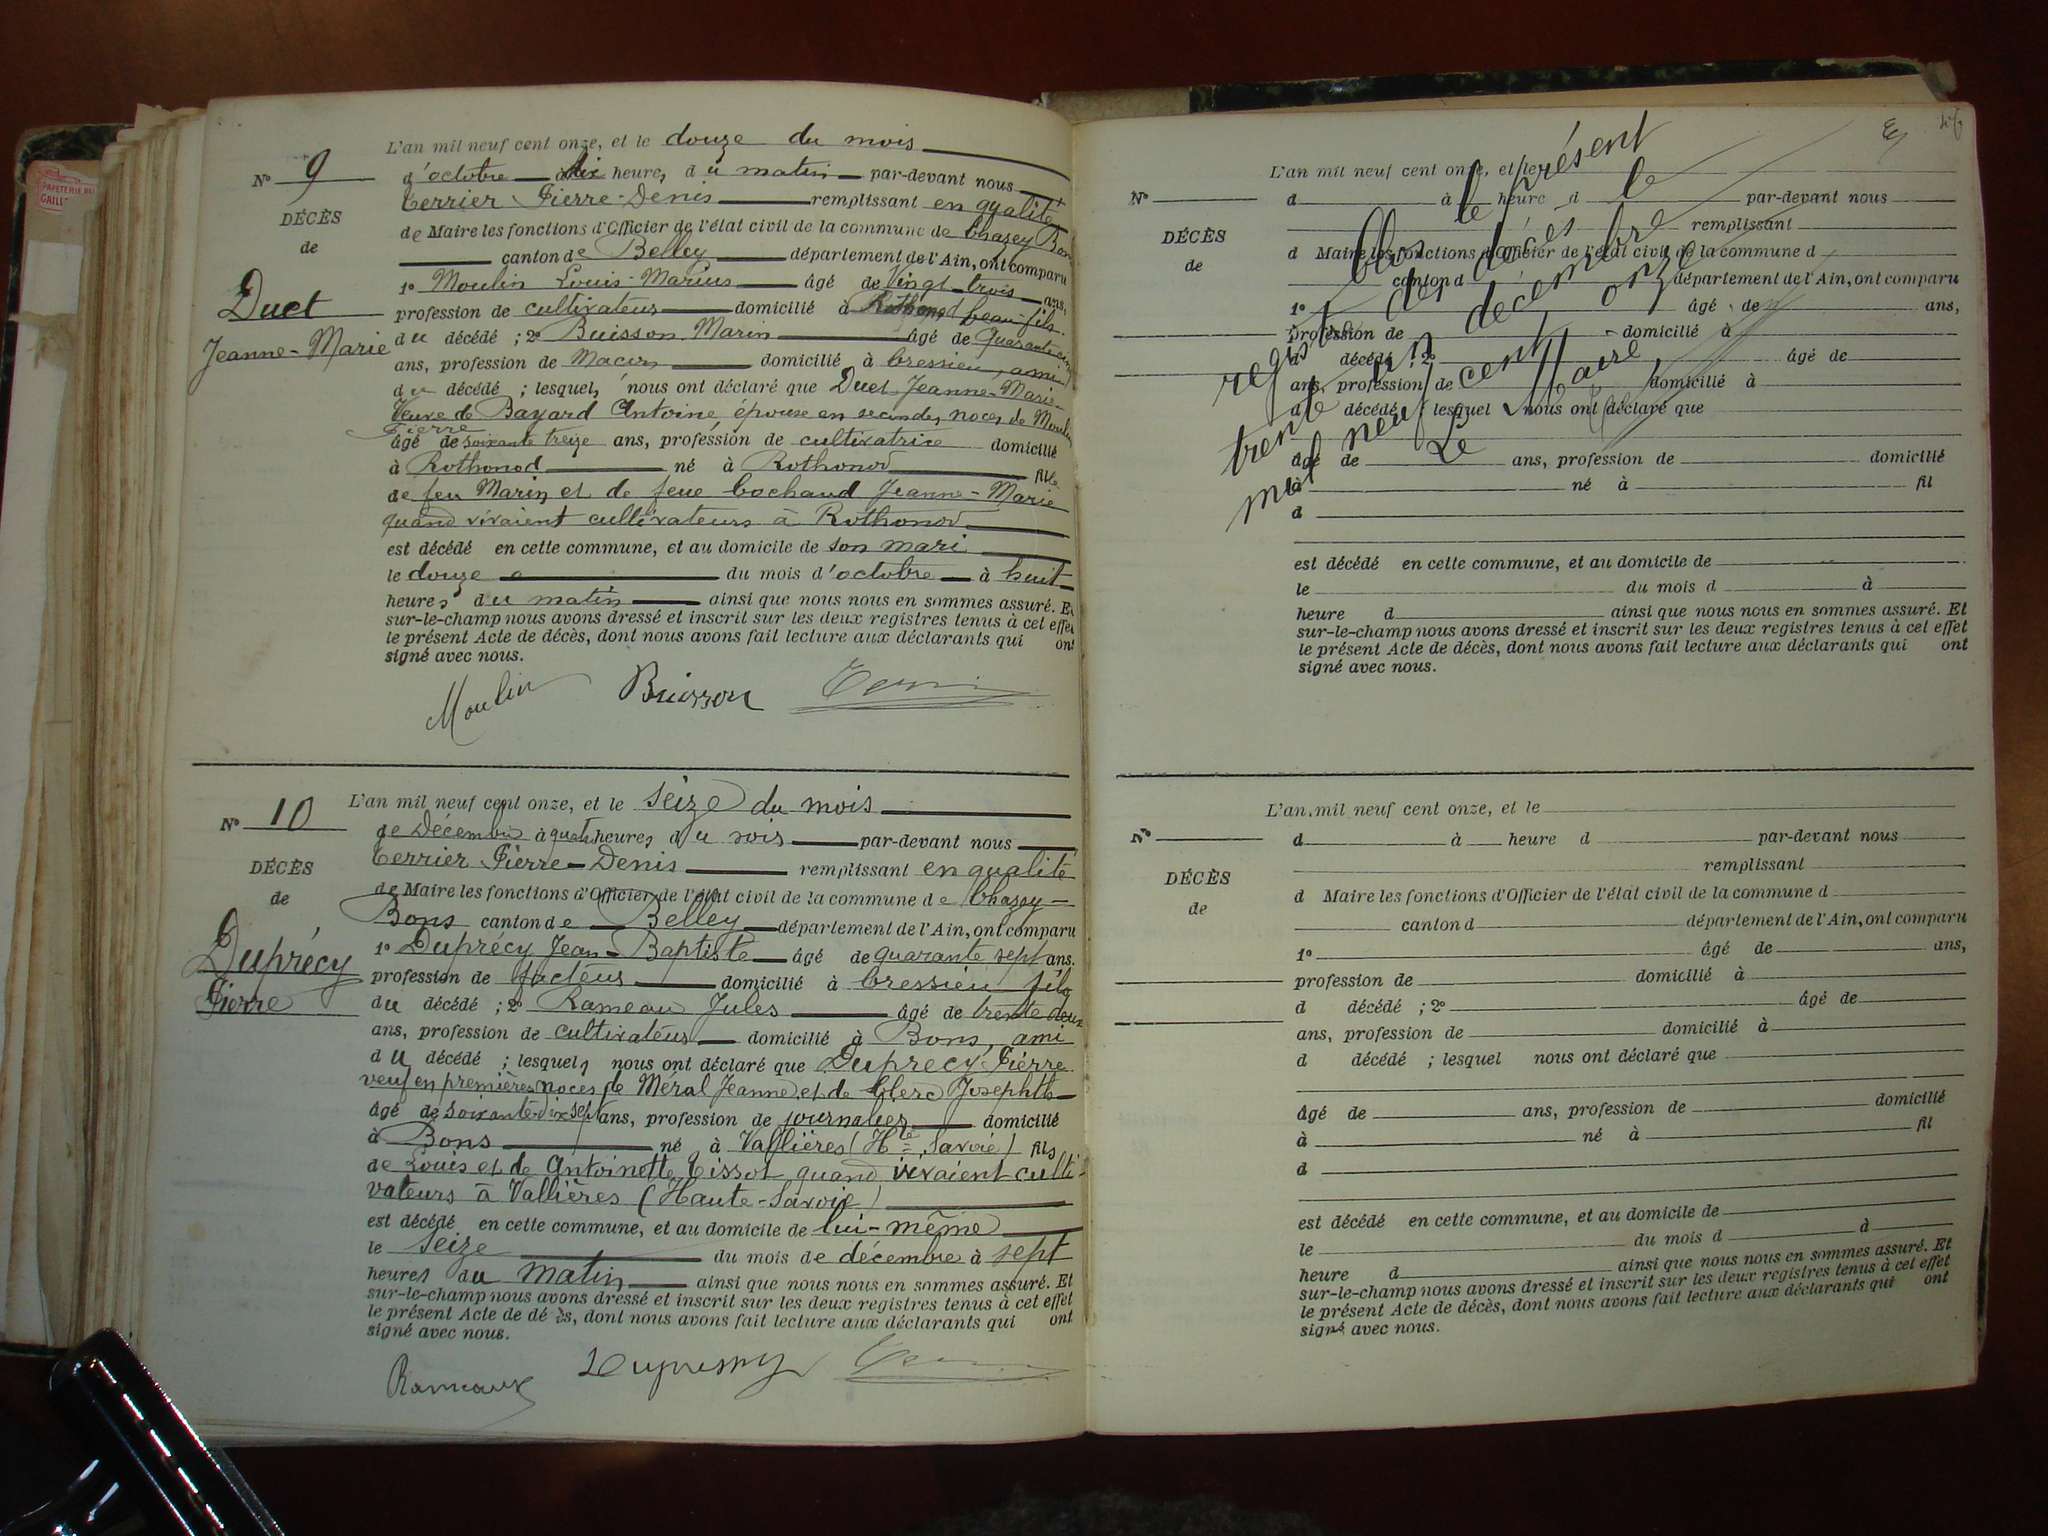 PAPETERIE
N° 9
DÉCÈS
de
Duet
Jeanne-Marie
L'an mil neuf cent onze, et le douze du mois
d'octobre à dix heures du matin par-devant nous
Terrier Pierre-Denis remplissant en qualité
de Maire les fonctions d'Officier de l'état civil de la commune de Chazey Bons
canton de Belley département de l'Ain, ont comparu
1° Moulin Louis-Marius âgé de Vingt-trois ans,
profession de cultivateur domicilié à Rothonod beau-fils
du décédé ; 2° Buisson Marin âgé de Quarante cinq
ans, profession de Maçon domicilié à Cressieu, ami
du décédé ; lesquels nous ont déclaré que Duet Jeanne-Marie
Veuve de Bayard Antoine, épouse en secondes noces de Moulin
Pierre
âgé de soixante treize ans, profession de cultivatrice domicilié
à Rothonod né à Rothonod fille
de feu Marin et de feue Cochand Jeanne-Marie
quand vivaient cultivateurs à Rothonod
est décédé en cette commune, et au domicile de son mari
le douze du mois d'octobre à huit
heures du matin ainsi que nous nous en sommes assuré. Et
sur-le-champ nous avons dressé et inscrit sur les deux registres tenus à cet effet
le présent Acte de décès, dont nous avons fait lecture aux déclarants qui ont
signé avec nous.
Moulin Buisson
N° 10
DÉCÈS
de
Duprécy
Pierre
L'an mil neuf cent onze, et le seize du mois
de Décembre à quatre heures du soir par-devant nous
Terrier Pierre-Denis remplissant en qualité
de Maire les fonctions d'Officier de l'état civil de la commune de Chazey-
Bons canton de Belley département de l'Ain, ont comparu
1° Duprécy Jean-Baptiste âgé de quarante sept ans.
profession de facteur domicilié à Cressieu fils
du décédé ; 2° Rameau Jules âgé de trente deux
ans, profession de cultivateur domicilié à Bons, ami
du décédé ; lesquels nous ont déclaré que Duprécy Pierre
veuf en premières noces de Méral Jeanne et de Clerc Josephte
âgé de soixante-dix sept ans, profession de journalier domicilié
à Bons né à Vallières (Hte Savoie) fils
de Louis et de Antoinette Tissot quand vivaient culti-
vateurs à Vallières (Haute-Savoie)
est décédé en cette commune, et au domicile de lui-même
le seize du mois de décembre à sept
heures du matin ainsi que nous nous en sommes assuré. Et
sur-le-champ nous avons dressé et inscrit sur les deux registres tenus à cet effet
le présent Acte de décès, dont nous avons fait lecture aux déclarants qui ont
signé avec nous.
Rameaux Dupressy
N°
DÉCÈS
de
L'an mil neuf cent onze, et le
d à heure d par-devant nous
remplissant
d Maire les fonctions d'Officier de l'état civil de la commune d
canton d département de l'Ain, ont comparu
1° âgé de ans,
profession de domicilié à
d décédé ; 2° âgé de
ans, profession de domicilié à
d décédé ; lesquel nous ont déclaré que
âgé de ans, profession de domicilié
à né à fil
d
Clos le présent
registre des décès le
trente un décembre
mil neuf cent onze
Le Maire
est décédé en cette commune, et au domicile de
le du mois d à
heure d ainsi que nous nous en sommes assuré. Et
sur-le-champ nous avons dressé et inscrit sur les deux registres tenus à cet effet
le présent Acte de décès, dont nous avons fait lecture aux déclarants qui ont
signé avec nous.
N°
DÉCÈS
de
L'an mil neuf cent onze, et le
d à heure d par-devant nous
remplissant
d Maire les fonctions d'Officier de l'état civil de la commune d
canton d département de l'Ain, ont comparu
1° âgé de ans,
profession de domicilié à
d décédé ; 2° âgé de
ans, profession de domicilié à
d décédé ; lesquel nous ont déclaré que
âgé de ans, profession de domicilié
à né à fil
d
est décédé en cette commune, et au domicile de
le du mois d à
heure d ainsi que nous nous en sommes assuré. Et
sur-le-champ nous avons dressé et inscrit sur les deux registres tenus à cet effet
le présent Acte de décès, dont nous avons fait lecture aux déclarants qui ont
signé avec nous.